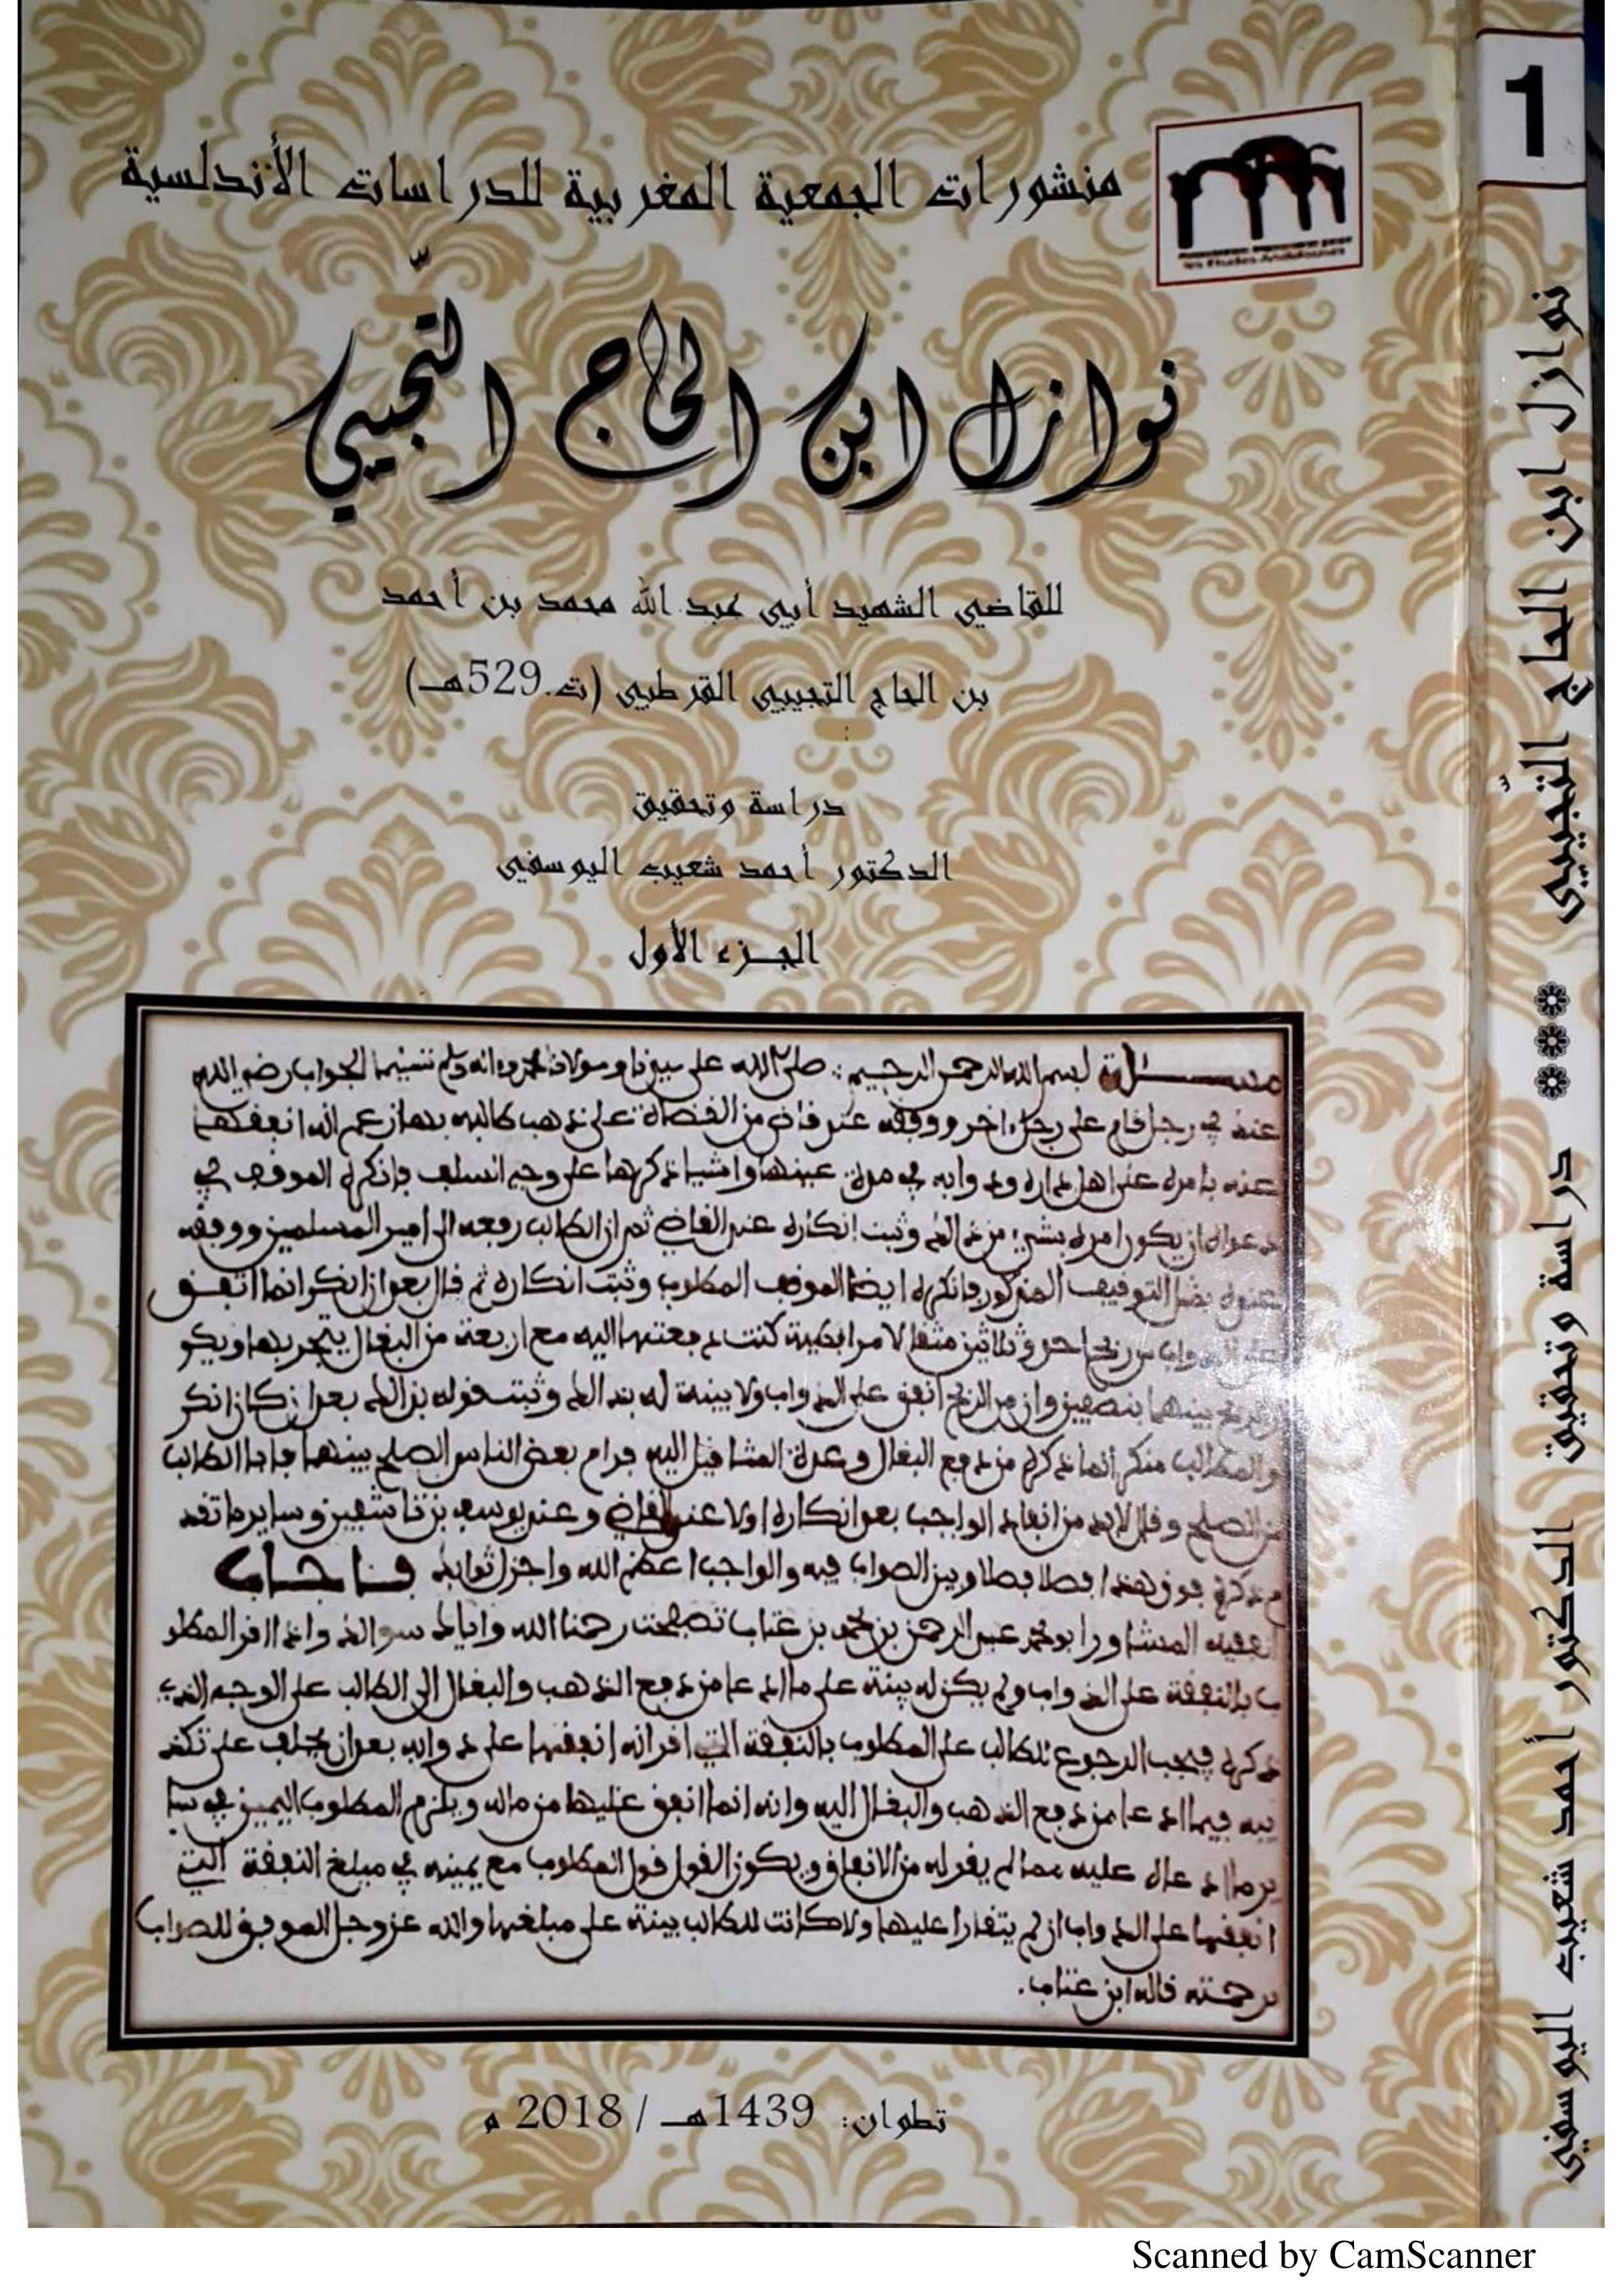 منشورات الجمعية المغربية للدراسات الأندلسية
نوازل ابن الحاج التّجيبي
للقاضي الشهيد أبي عبد الله محمد بن أحمد
بن الحاج التجيبي القرطبي (ت.529هـ)
دراسة وتحقيق
الدكتور أحمد شعيب اليوسفي
الجزء الأول
بسم الله الرحمن الرحيم
عنه في رجل قام على رجل اخر ووقفه عند قاض من القضاة على ذهب طالبه بها زعم انه انفقها
عنه بامره على اهل داره ودوابه في مدة عينها واشيا ذكرها على وجه السلف فانكره الموقف في
دعواه ان يكون امره بشيء من ذلك وثبت انكاره عند القاضي ثم ان الطالب رفعه الى امير المسلمين ووقفه
بمثل التوقيف المذكور فانكره ايضا الموقف المطلوب وثبت انكاره ثم قال بعد ان انكر انما انفق
من ربح احد وثلاثين مثقالا مرابطية كنت دفعتها اليه مع اربعة من البغال يتجر بها ويكو
بينهما بنصفين وان من الربح انفق على الدواب ولا بينة له بذلك وثبت قوله بذلك بعد ان كان انكر
والطالب منكر لما ذكره من دفع البغال وعدة المثاقيل اليه فرام بعض الناس الصلح بينهما فابا الطالب
من الصلح وقال لا بد من انفاذ الواجب بعد انكاره اولا عند القاضي وعند يوسف بن تاشفين وساير ما تقد
م ذكره فوق هذا فصلا فصلا وبين الصواب فيه والواجب اعظم الله واجزل ثوابك فـاجـاب
الفقيه المشاور ابو محمد عبد الرحمن بن محمد بن عتاب تصفحت رحمنا الله واياك سوالك واذا اقر المطلو
ب بالنفقة على الدواب ولم يكن له بينة على ما ادعا من دفع الذهب والبغال الى الطالب على الوجه الذي
ذكره فيجب الرجوع للطالب على المطلوب بالنفقة التي اقر انه انفقها على دوابه بعد ان يحلف على تكذ
يبه فيما ادعا من دفع الذهب والبغال اليه وانه انما انفق عليها من ماله ويلزم المطلوب اليمين في سا
ير ما ادعاه عليه مما لم يقر له من الانفاق ويكون القول قول المطلوب مع يمينه في مبلغ النفقة التي
انفقها على الدواب ان لم يتقارا عليها ولا كانت للطالب بينة على مبلغها والله عز وجل الموفق للصواب
برحمته قاله ابن عتاب.
تطوان: 1439هـ / 2018 م
1
نوازل ابن الحاج التُجيبي *** دراسة وتحقيق الدكتور أحمد شعيب اليوسفي
Scanned by CamScanner